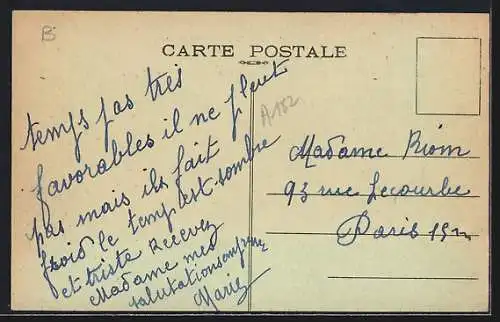 B
CARTE POSTALE
temps pas très
favorables il ne pleut
pas mais ils fait
froid le temp est sombre
et triste Recevez
Madame mes
salutations
Marie
A182
Madame Riom
93 rue Lecourbe
Paris 15